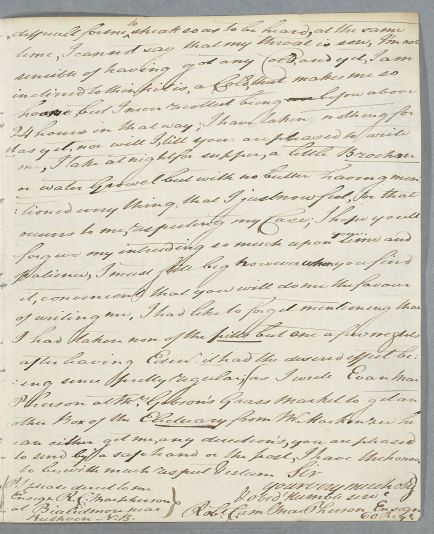 difficult for me, to speak so as to be heard, at the same
time, I cannot say that my throat is sore, I'm not
sensible of having got any Cold, and yet, I am
inclined to think it is, a Cold, that makes me so
hoarse but I never recollect being before above
24 hours in that way, I have taken nothing for
it as yet, nor will I, till you are pleased to write
me, I take at night for supper, a little Brochan
or water Gruwel but with no butter having men
:tioned every thing, that I just now feel, or that
occurs to me, respecting my Case, I hope you'll
forgive my intruding so much upon your time and
patience, I must still beg however when you find
it, convenient that you will do me the favour
of writing me, I had like to forgot mentioning that
I had taken non of the pills but one a few nights
after having it had the desired effect be:
:ing since pretty regular, as I wrote Evan Mac
Pherson at Mrs Gibson's Grass market to get an
other Box of the Electuary from Mr MacKenzie he
can either get me, any directions, you are pleased
to send by a safe hand or the post, I have the honor
to be, with much respect & esteem Sir
your very much obligd
& obedt humble servt
Robt Cam: MacPherson Ensign
60 Regt
P.S. please direct to me
Ensign R. C. Macpherson
at Bialidmore near
Ruthven N.B.